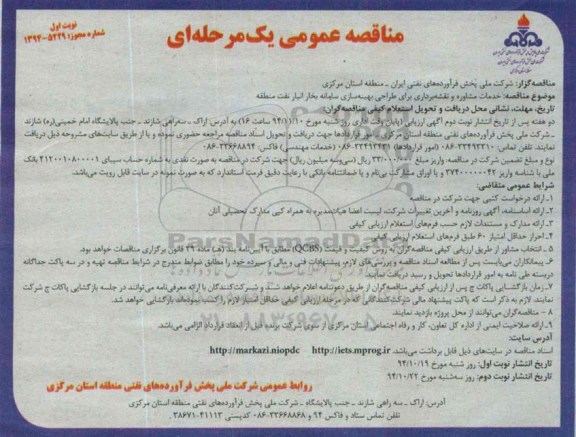 نوبت اول
شماره مجوز: ۱۳۹۴-۵۲۲۹
مناقصه عمومی یک‌مرحله‌ای
مناقصه‌گزار: شرکت ملی پخش فرآورده‌های نفتی ایران ـ منطقه استان مرکزی
موضوع مناقصه: خدمات مشاوره و نقشه‌برداری برای طراحی بهینه‌سازی سامانه بخار انبار نفت منطقه
تاریخ، مهلت، نشانی محل دریافت و تحویل استعلام کیفی مناقصه‌گران:
دو هفته پس از تاریخ انتشار نوبت دوم آگهی ارزیابی (پایان وقت اداری روز شنبه مورخ ۹۴/۱۱/۱۰ ساعت ۱۶) به آدرس اراک ـ سه‌راهی شازند ـ جنب پالایشگاه امام خمینی(ره) شازند
ـ شرکت ملی پخش فرآورده‌های نفتی منطقه استان مرکزی ـ امور قراردادها جهت دریافت و تحویل اسناد مناقصه مراجعه حضوری نموده و یا از طریق سایت‌های مشروحه ذیل دریافت
نمایند. تلفن تماس: ۳۳۴۹۳۳۱۰-۰۸۶ (امور قراردادها) ۳۳۴۹۳۴۳۱-۰۸۶ (خدمات مهندسی) فاکس: ۳۳۶۶۸۸۹۴-۰۸۶
نوع و مبلغ تضمین شرکت در مناقصه: واریز مبلغ ۳۳۰/۰۰۰/۰۰۰ ریال (سی‌وسه میلیون ریال) جهت شرکت در مناقصه به صورت نقدی به شماره حساب سیبای ۴۱۲۰۰۱۰۸۰۰۰۰۱ بانک
ملی با شناسه واریز ۲۷۴۰۰۰۰۰۰۰۴۲ و یا اوراق مشارکت بی‌نام و یا ضمانتنامه بانکی با رعایت دقیق فرمت استاندارد که به صورت نمونه در سایت قابل رویت می‌باشد.
شرایط عمومی متقاضی:
۱ـ ارائه درخواست کتبی جهت شرکت در مناقصه
۲ـ ارائه اساسنامه، آگهی روزنامه و آخرین تغییرات شرکت، لیست اعضا هیات‌مدیره به همراه کپی مدارک تحصیلی آنان
۳ـ ارائه مدارک و مستندات لازم حسب فرم‌های استعلام ارزیابی کیفی
۴ـ احراز حداقل امتیاز ۶۰ طبق فرم‌های استعلام ارزیابی کیفی
۵ـ انتخاب مشاور از طریق ارزیابی کیفی مناقصه‌گران به روش کیفیت و قیمت (QCBS) مطابق با آیین‌نامه بند (هـ) ماده ۲۹ قانون برگزاری مناقصات خواهد بود.
۶ـ پیمانکاران می‌بایست پس از مطالعه اسناد مناقصه و بررسی‌های لازم، پیشنهادات فنی و مالی و سپرده خود را مطابق ضوابط مندرج در شرایط مناقصه تهیه و در سه پاکت جداگانه
دربسته طی نامه به امور قراردادها تحویل و رسید دریافت نمایند.
۷ـ زمان بازگشایی پاکات ج پس از ارزیابی کیفی مناقصه‌گران از طریق دعوتنامه اعلام خواهد شد و شرکت‌کنندگان با ارائه معرفی‌نامه می‌توانند در جلسه بازگشایی پاکات ج شرکت
نمایند. لازم به ذکر است که پاکت پیشنهاد مالی شرکت‌کنندگانی که در مرحله ارزیابی کیفی حداقل امتیاز لازم را کسب ننموده‌اند بازگشایی خواهد شد.
۸ ـ مناقصه‌گران می‌توانند از محل پروژه بازدید نمایند.
۹ـ ارائه صلاحیت ایمنی از اداره کل تعاون، کار و رفاه اجتماعی استان مرکزی از سوی شرکت برنده قبل از انعقاد قرارداد الزامی می‌باشد.
آدرس سایت:
اسناد مناقصه در سایت‌های ذیل قابل برداشت می‌باشد. http://iets.mprog.ir http://markazi.niopdc
تاریخ انتشار نوبت اول: روز شنبه مورخ ۹۴/۱۰/۱۹
تاریخ انتشار نوبت دوم: روز سه‌شنبه مورخ ۹۴/۱۰/۲۲
روابط عمومی شرکت ملی پخش فرآورده‌های نفتی منطقه استان مرکزی
آدرس: اراک ـ سه راهی شازند ـ جنب پالایشگاه ـ شرکت ملی پخش فرآورده‌های نفتی منطقه استان مرکزی
تلفن تماس ستاد و فاکس ۹۴ و ۳۳۶۶۸۸۶۸-۰۸۶ کدپستی ۴۱۱۱۳-۳۸۶۷۱
ParsNamadData
۰۲۱-۸۸۳۴۹۶۷۰-۵